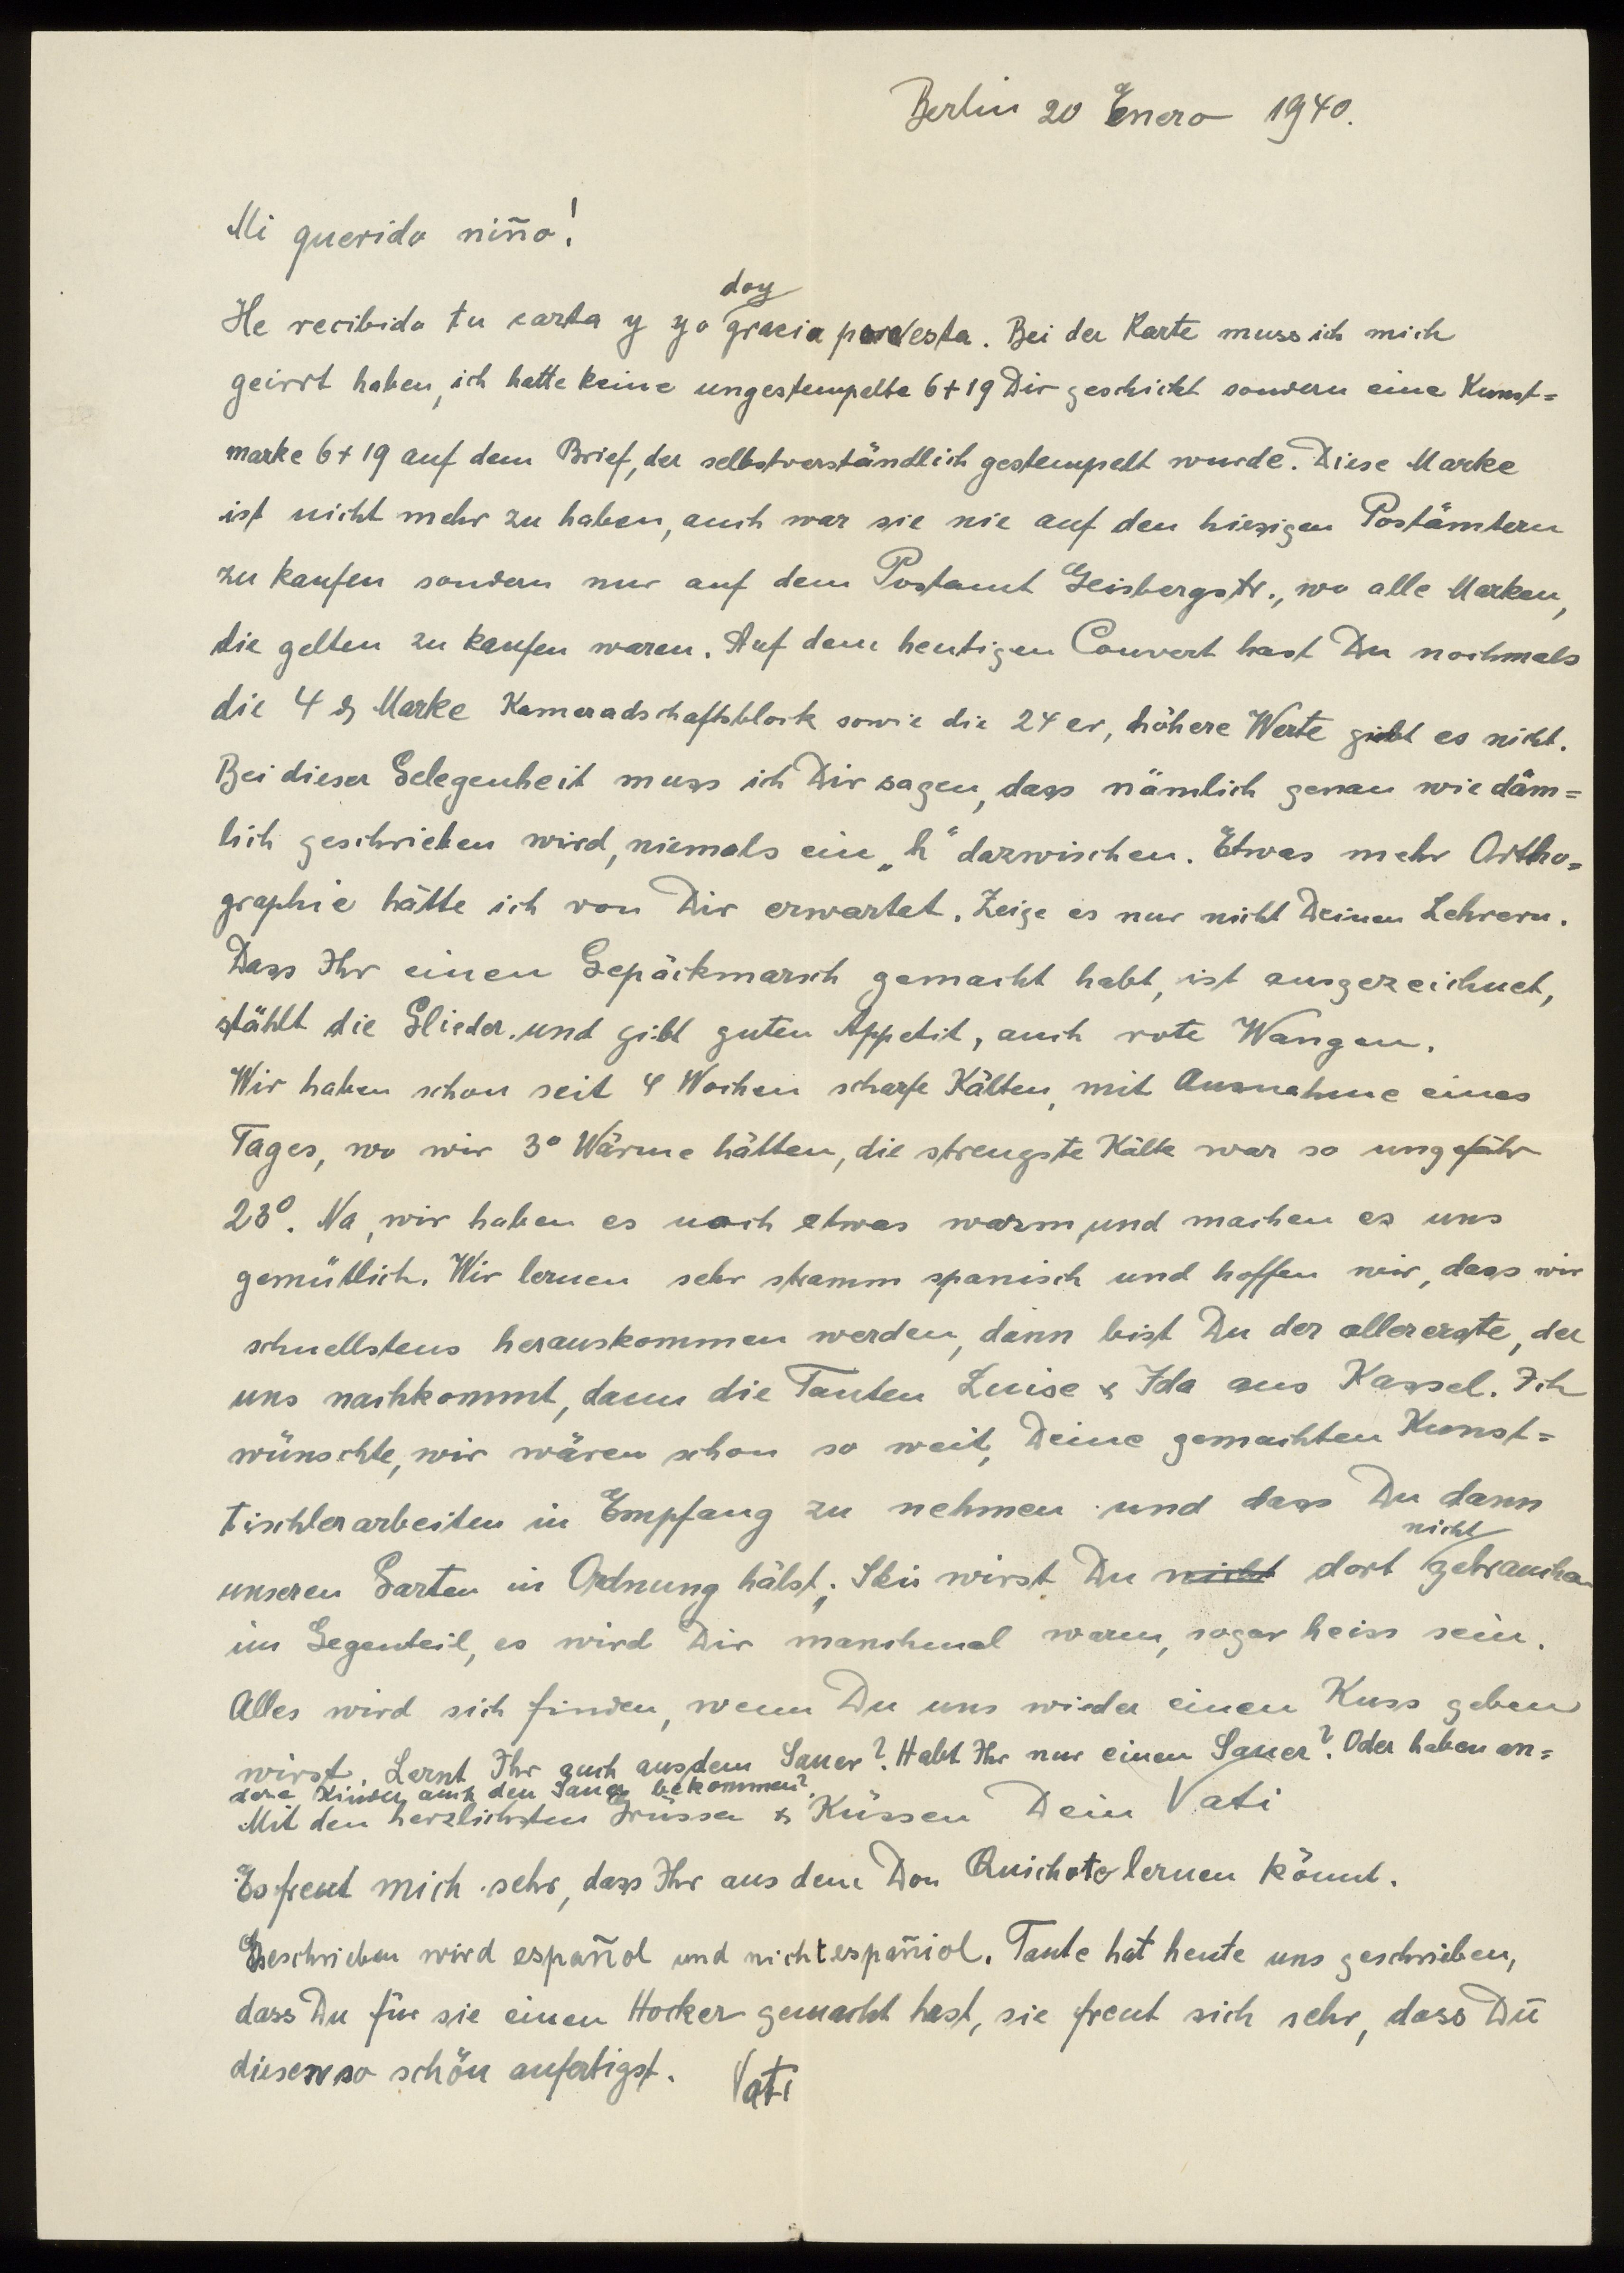 Berlin 20 Enero 1940.
Mi querido niño!
doy
He recibido tu carta y yo gracia por esta. Bei der Karte muss ich mich
geirrt haben, ich hatte keine ungestempelte 6+19 Dir geschickt sondern eine Kunst=
marke 6+19 auf dem Brief, der selbstverständlich gestempelt wurde. Diese Marke
ist nicht mehr zu haben, auch war sie nie auf den hiesigen Postämtern
zu kaufen sondern nur auf dem Postamt Geisbergstr., wo alle Marken,
die gelten zu kaufen waren. Auf dem heutigen Couvert hast Du nochmals
die 4 Marke Kameradschaftsblock sowie die 24 er, höhere Werte giebt es nicht.
Bei dieser Gelegenheit muss ich Dir sagen, dass nämlich genau wie däm=
lich geschrieben wird, niemals ein „h“ dazwischen. Etwas mehr Ortho=
graphie hätte ich von Dir erwartet. Zeige es nur nicht Deinen Lehrern.
Dass Ihr einen Gepäckmarsch gemacht habt, ist ausgezeichnet,
stählt die Glieder und gibt guten Appetit, auch rote Wangen.
Wir haben schon seit 4 Wochen scharfe Kälten, mit Ausnahme eines
Tages, wo wir 3° Wärme hätten, die strengste Kälte war so ungefähr
23°. Na, wir haben es noch etwas warm und machen es uns
gemütlich. Wir lernen sehr stramm spanisch und hoffen wir, dass wir
schnellstens herauskommen werden, dann bist Du der allererste, der
uns nachkommt, dann die Tanten Luise & Ida aus Kassel. Ich
wünschte, wir wären schon so weit, Deine gemachten Kunst=
tischlerarbeiten in Empfang zu nehmen und dass Du dann
nicht
unseren Garten in Ordnung hälst. Skii wirst Du nicht dort gebrauchen
im Gegenteil, es wird Dir manchmal warm, sogar heiss sein.
Alles wird sich finden, wenn Du uns wieder einen Kuss geben
wirst. Lernt Ihr auch aus dem Sauer? Habt Ihr nur einen Sauer? Oder haben an=
dere Kinder auch den Sauer bekommen?
Mit den herzlichsten Grüssen & Küssen Dein Vati
Es freut mich sehr, dass Ihr aus dem Don Quichote lernen könnt.
Geschrieben wird español und nicht españiol. Tante hat heute uns geschrieben,
dass Du für sie einen Hocker gemacht hast, sie freut sich sehr, dass Du
diesen so schön anfertigst. Vati